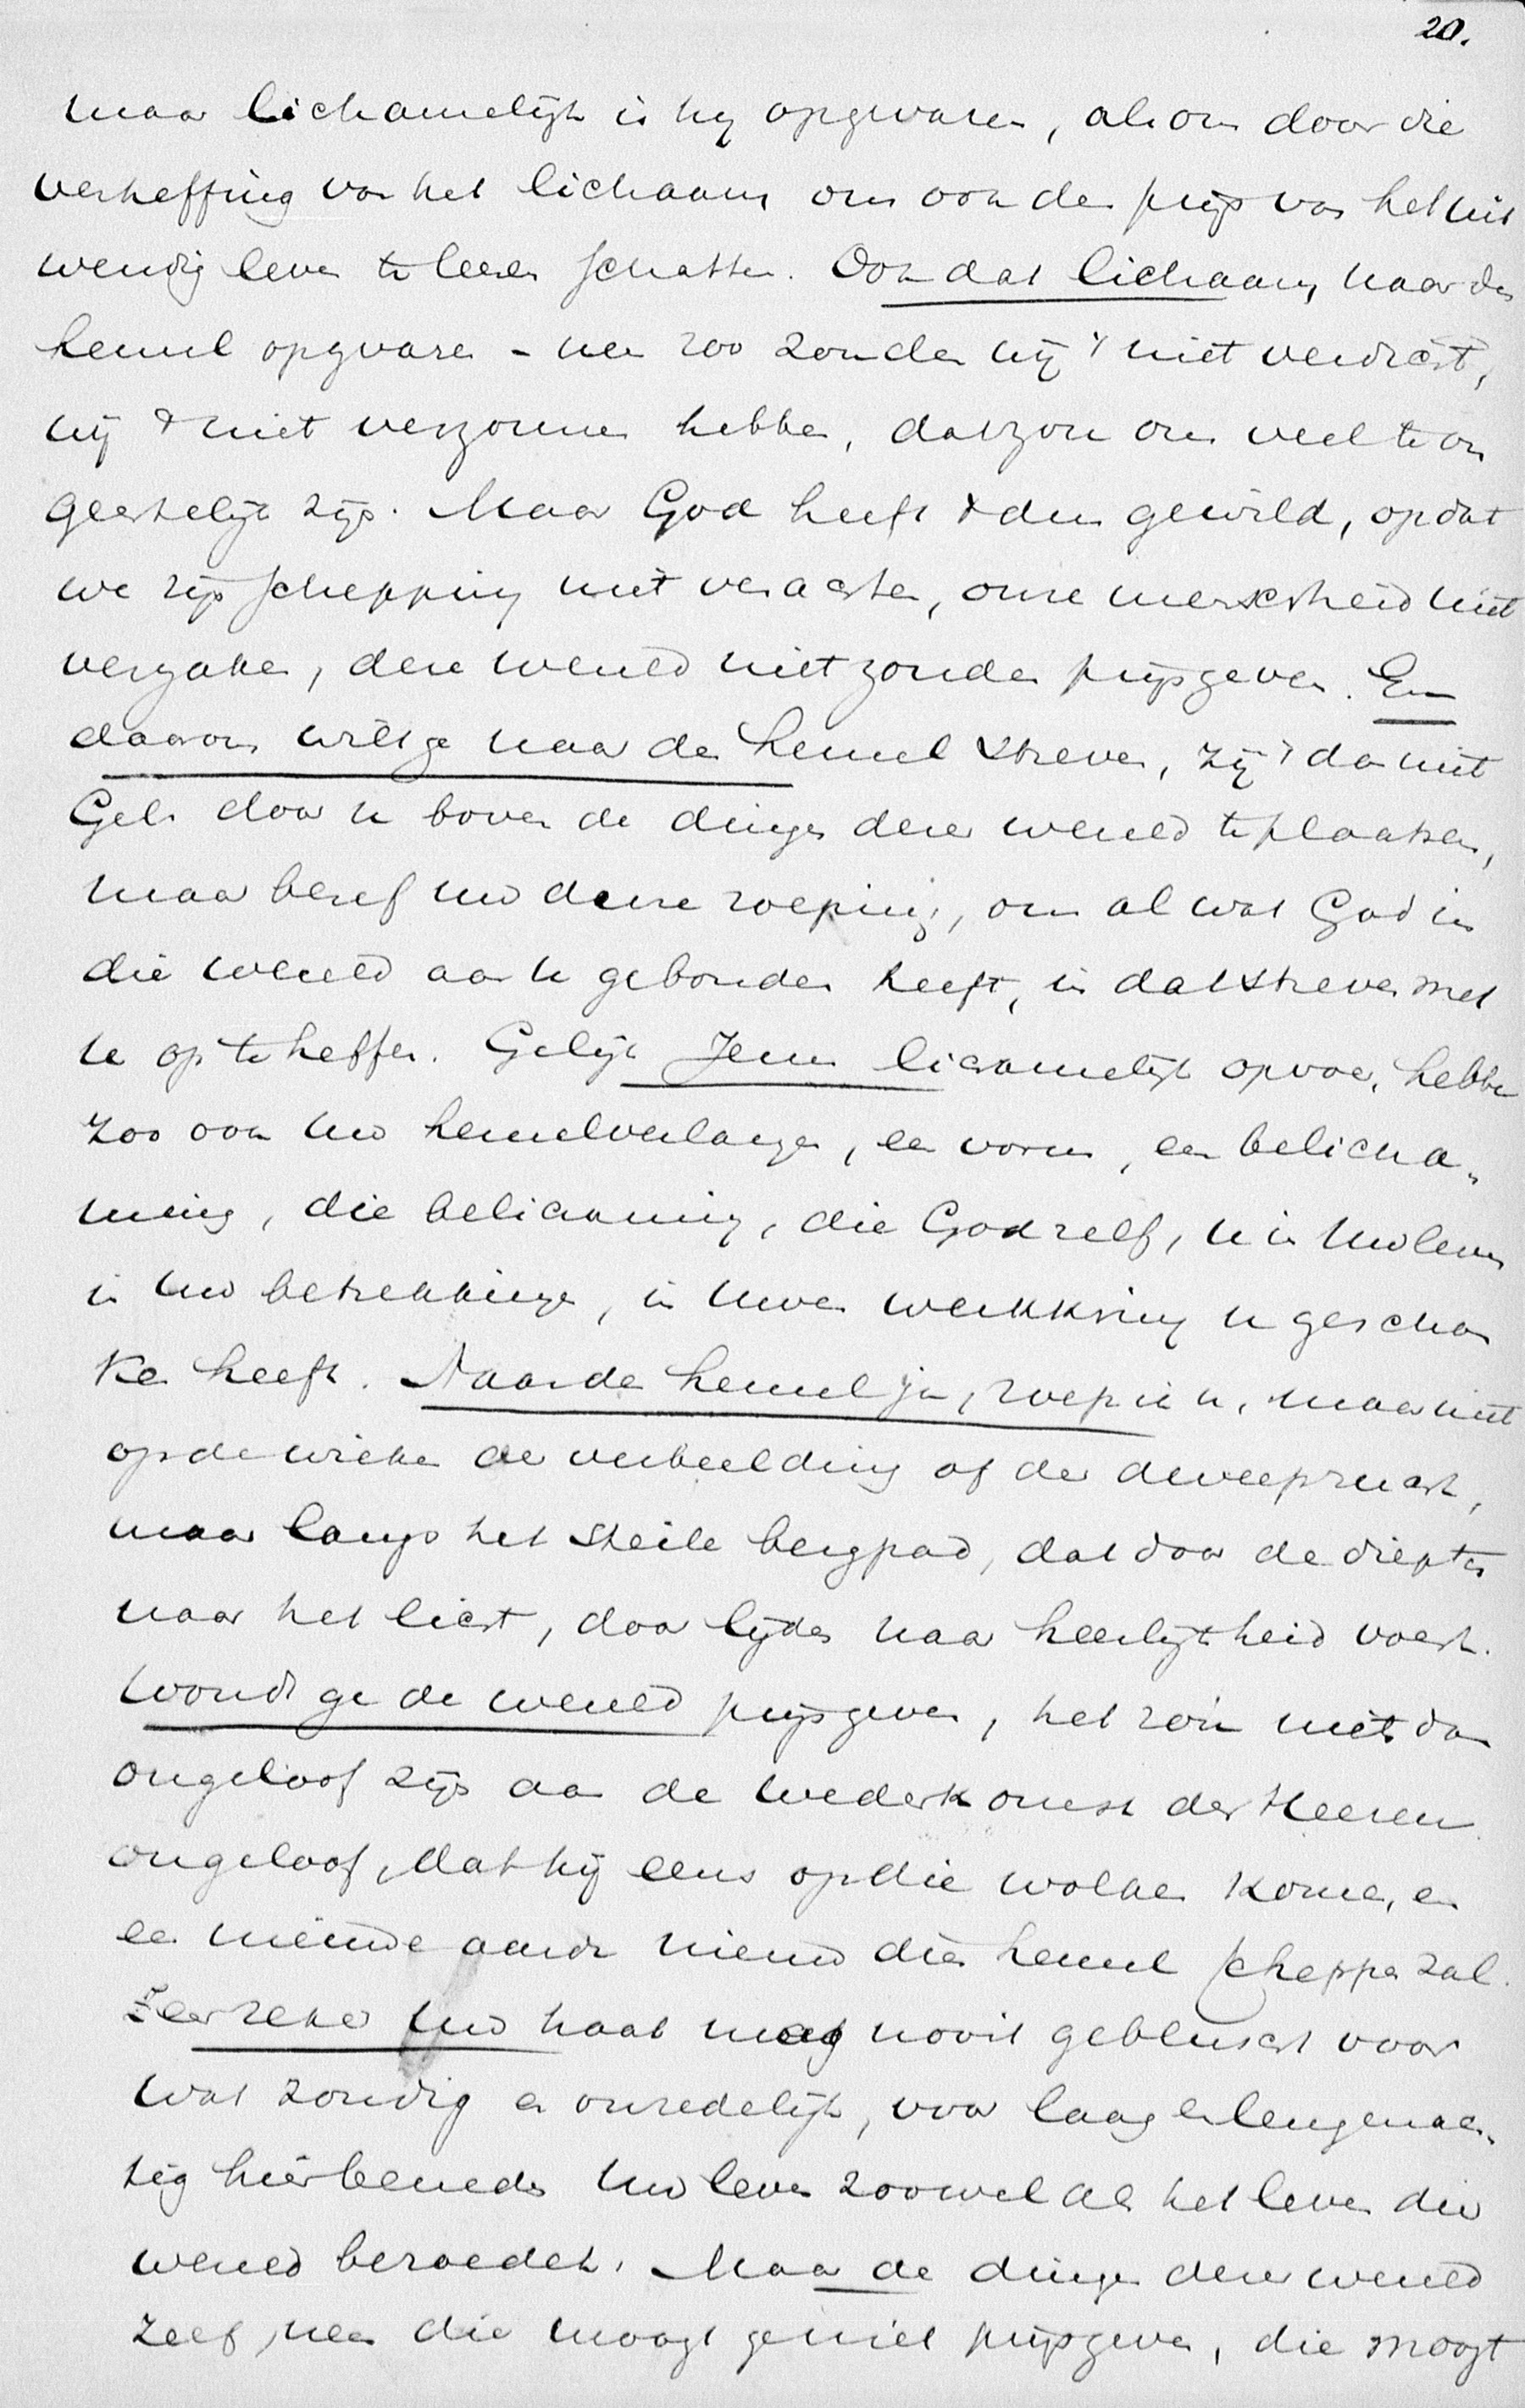 20.
maar lichamelijk is hij opgevaren, als om door die
verheffing van het lichaam ons ook den prijs van het uit
wendig leven te leeren schatten. Ook dat lichaam naar den
hemel opgevaren - neen zoo zouden wij 't niet verdicht,
wij 't niet verzonnen hebben, dat zou ons veel te on
geestelijk zijn. Maar God heeft 't dus gewild, opdat
we zijn schepping niet verachten, onze menschheid niet
verzaken, deze wereld niet zouden prijsgeven. En
daarom wilt ge naar den hemel streven, zij 't dan niet
Gel. door u boven de dingen dezer wereld te plaatsen,
maar besef uw dure roeping, om al wat God in
die wereld aan u gebonden heeft, in dat streven met
u op te heffen. Gelijk Jezus lichamelijk opvoer, hebbe
zoo ook uw hemelverlangen, een vorm, een belicha-
ming, die belichaming, die God zelf, u in uw leven
in uw betrekkingen, in uwen werkkring u geschon
ken heeft. Naar den hemel ja, roep ik u, maar niet
op de wieken der verbeelding of der dweepzucht,
maar langs het steile bergpad, dat door de diepten
naar het licht, door lijden naar heerlijkheid voert.
Woudt ge de wereld prijsgeven, het zou niet dan
ongeloof zijn aan de wederkomst des Heeren
ongeloof, dat hij eens op die wolken komen, en
een nieuwe aarde nieuw dien hemel scheppen zal.
Zeer zeker uw haat mag nooit gebluscht voor
wat zondig en onzedelijk, voor laag en leugenach-
tig hier beneden uw leven zoowel als het leven dier
wereld bezoedelt. Maar de dingen dezer wereld
zelf, neen die moogt ge niet prijsgeven, die moogt